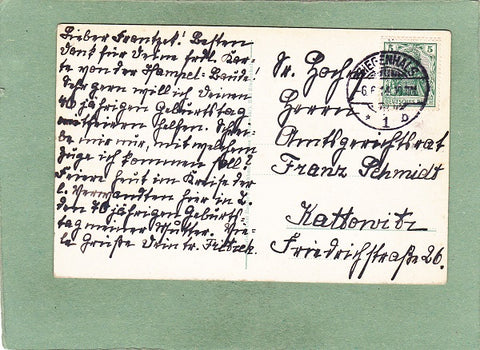 Lieber Frantzek! Besten
Dank für Deine frdl. Kar-
te von der Stempel-Bude!
Sehr gern will ich deinen
40 jährigen Geburtstag
mitfeiern helfen. Schrei-
be mir nur, mit welchem
Zuge ich kommen soll!
Feiere heut im Kreise der
l. Verwandten hier in Z.
den 70 jährigen Geburts-
tag meiner Mutter. Vie-
le Grüße Dein tr.
5 5
ZIEGENHALS
1 b
Sr. Hochw.
Herrn
Amtsgerichtsrat
Franz Schmidt
Kattowitz
Friedrichstraße 26.